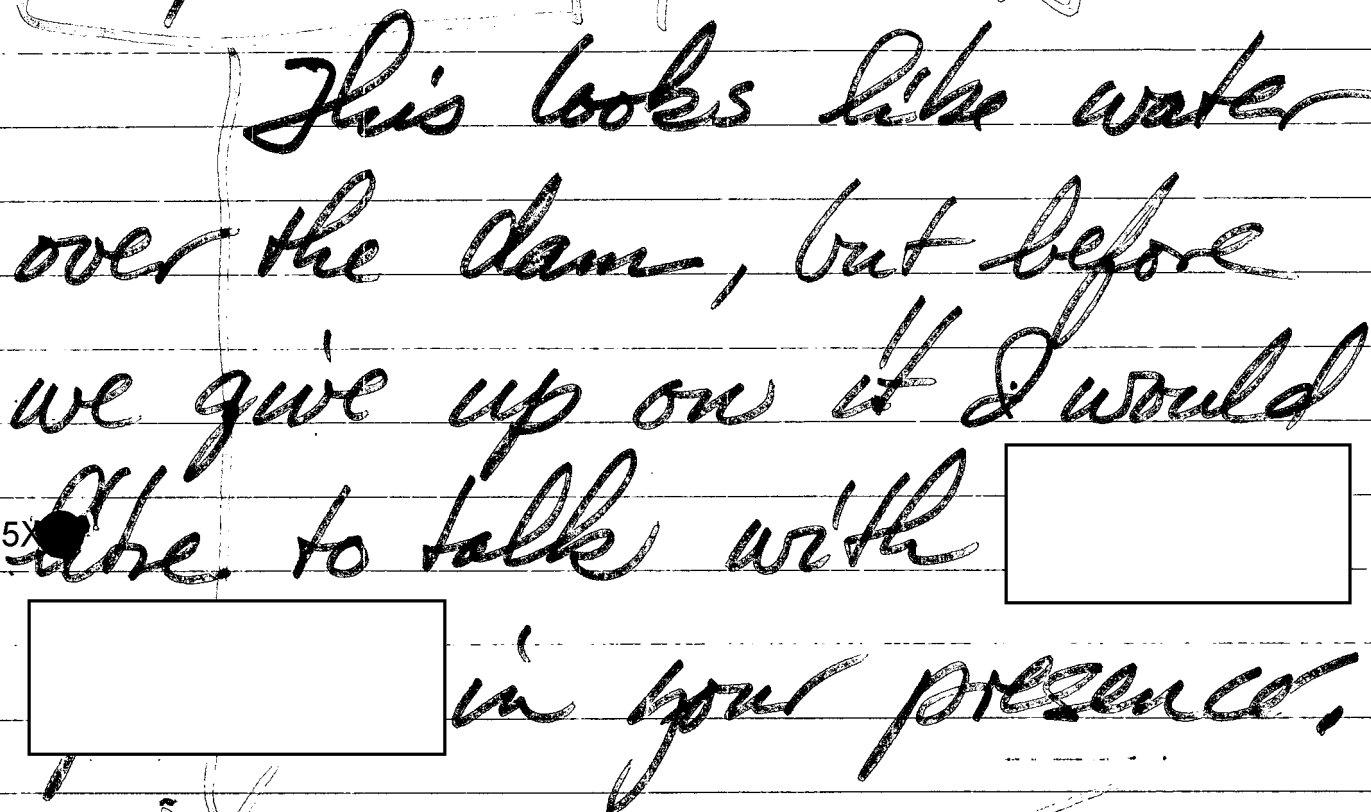 This looks like water
over the dam, but before
we give up on it I would
like to talk with
in your presence.